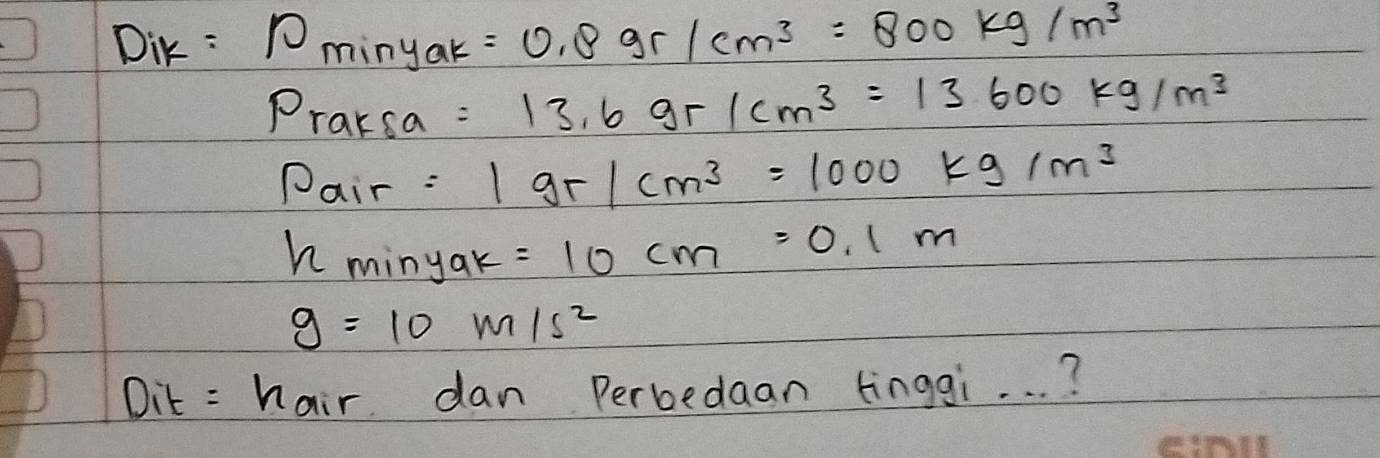 Dik : ρ minyak = 0,8 gr/cm³ = 800 kg/m³
ρ raksa = 13,6 gr/cm³ = 13.600 kg/m³
ρ air = 1 gr/cm³ = 1000 kg/m³
h minyak = 10 cm = 0,1 m
g = 10 m/s²
Dit = h air dan Perbedaan tinggi ...?
SiDU